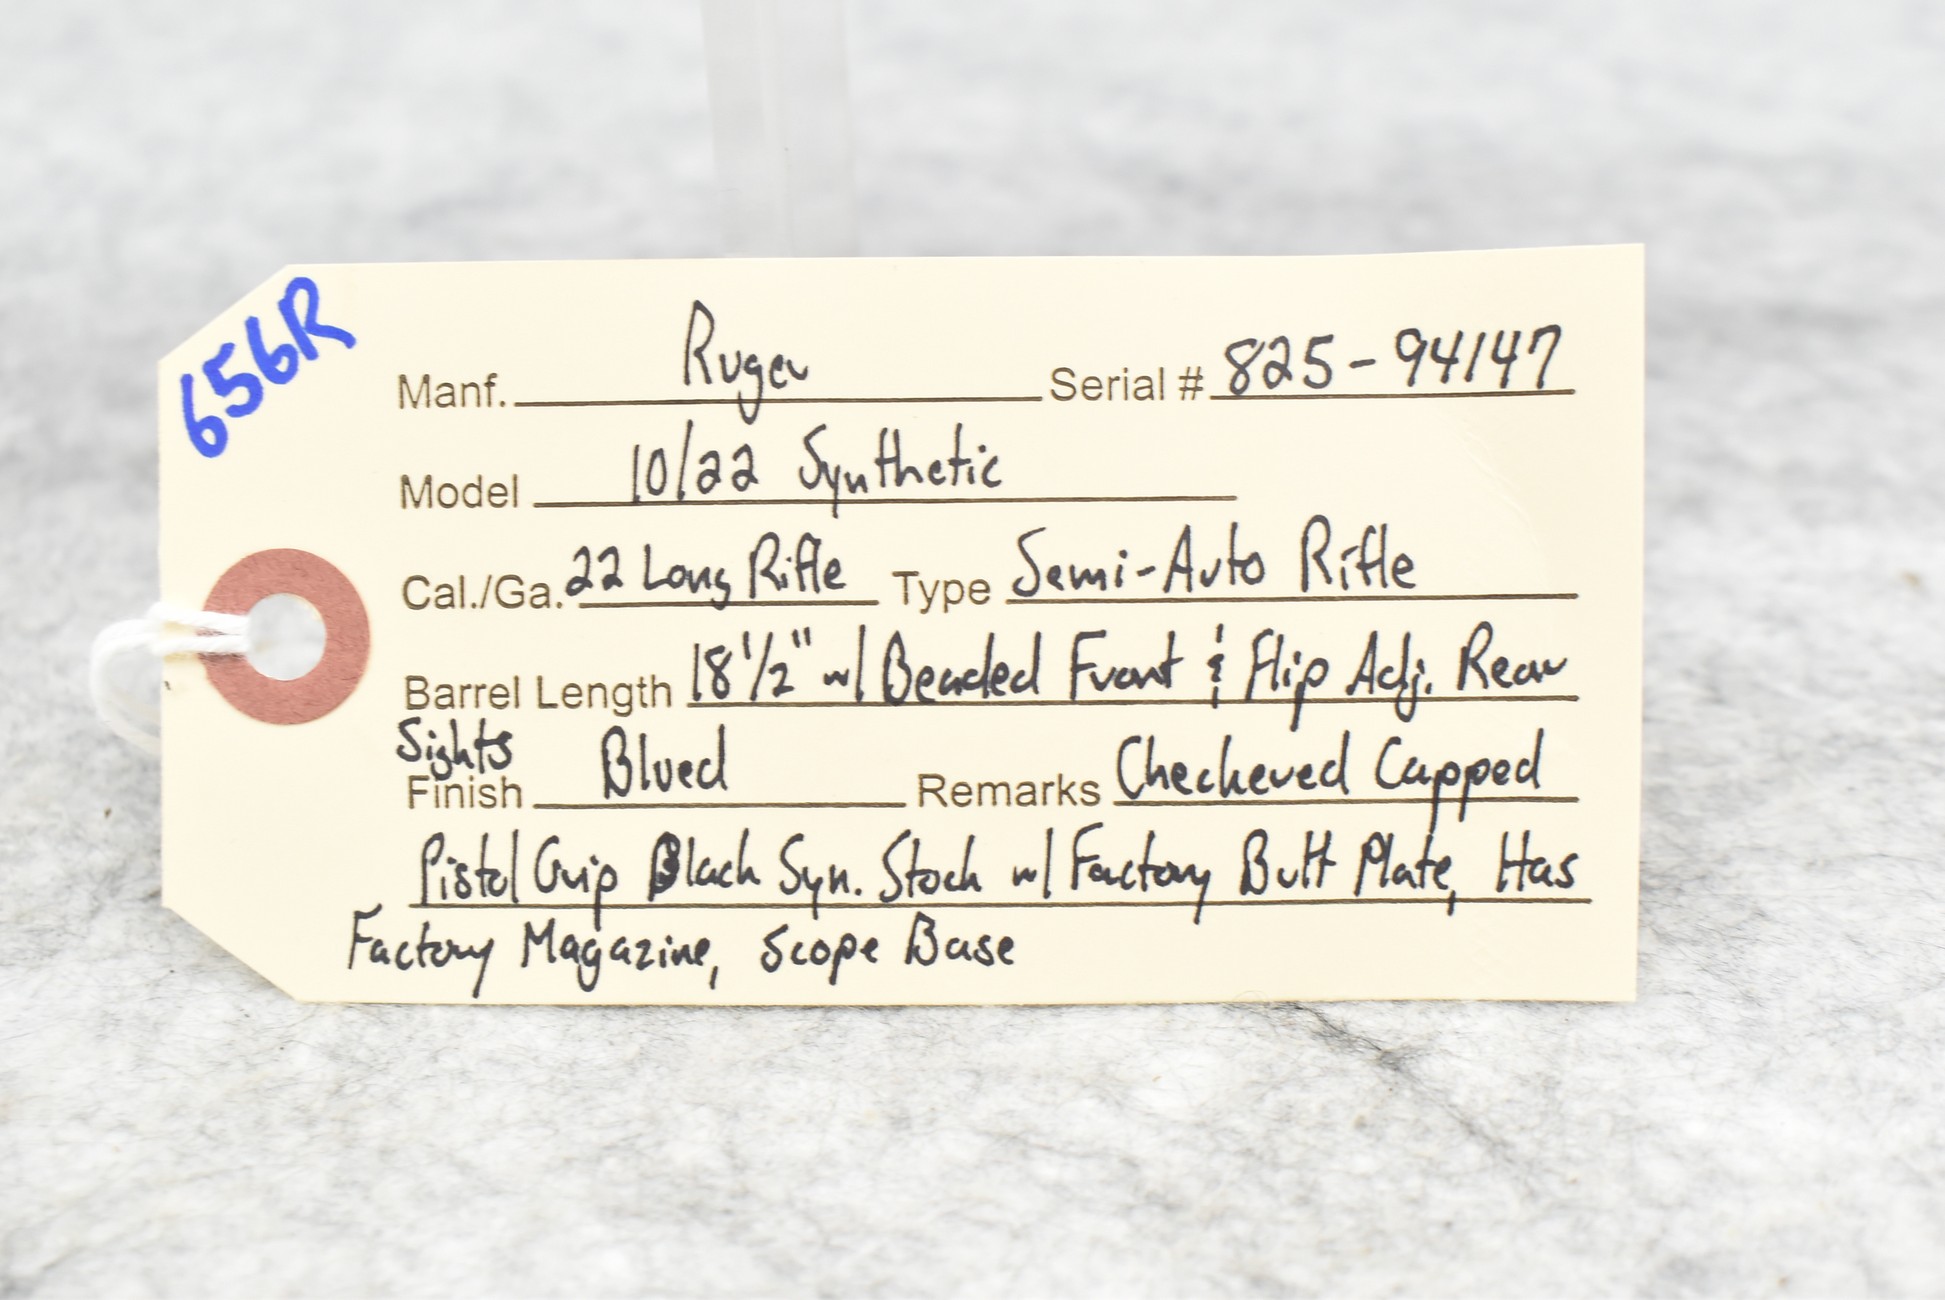 656R
Manf. Ruger Serial # 825-94147
Model 10/22 Synthetic
Cal./Ga. 22 Long Rifle Type Semi-Auto Rifle
Barrel Length 18 1/2" w/ Beaded Front & Flip Adj. Rear
Sights
Finish Blued Remarks Checkered Capped
Pistol Grip Black Syn. Stock w/ Factory Butt Plate, Has
Factory Magazine, Scope Base